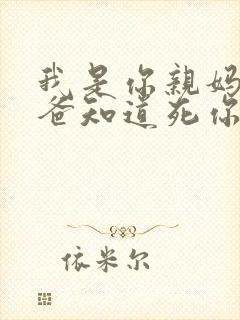 我是你親妈
爸知道死你
依米尔